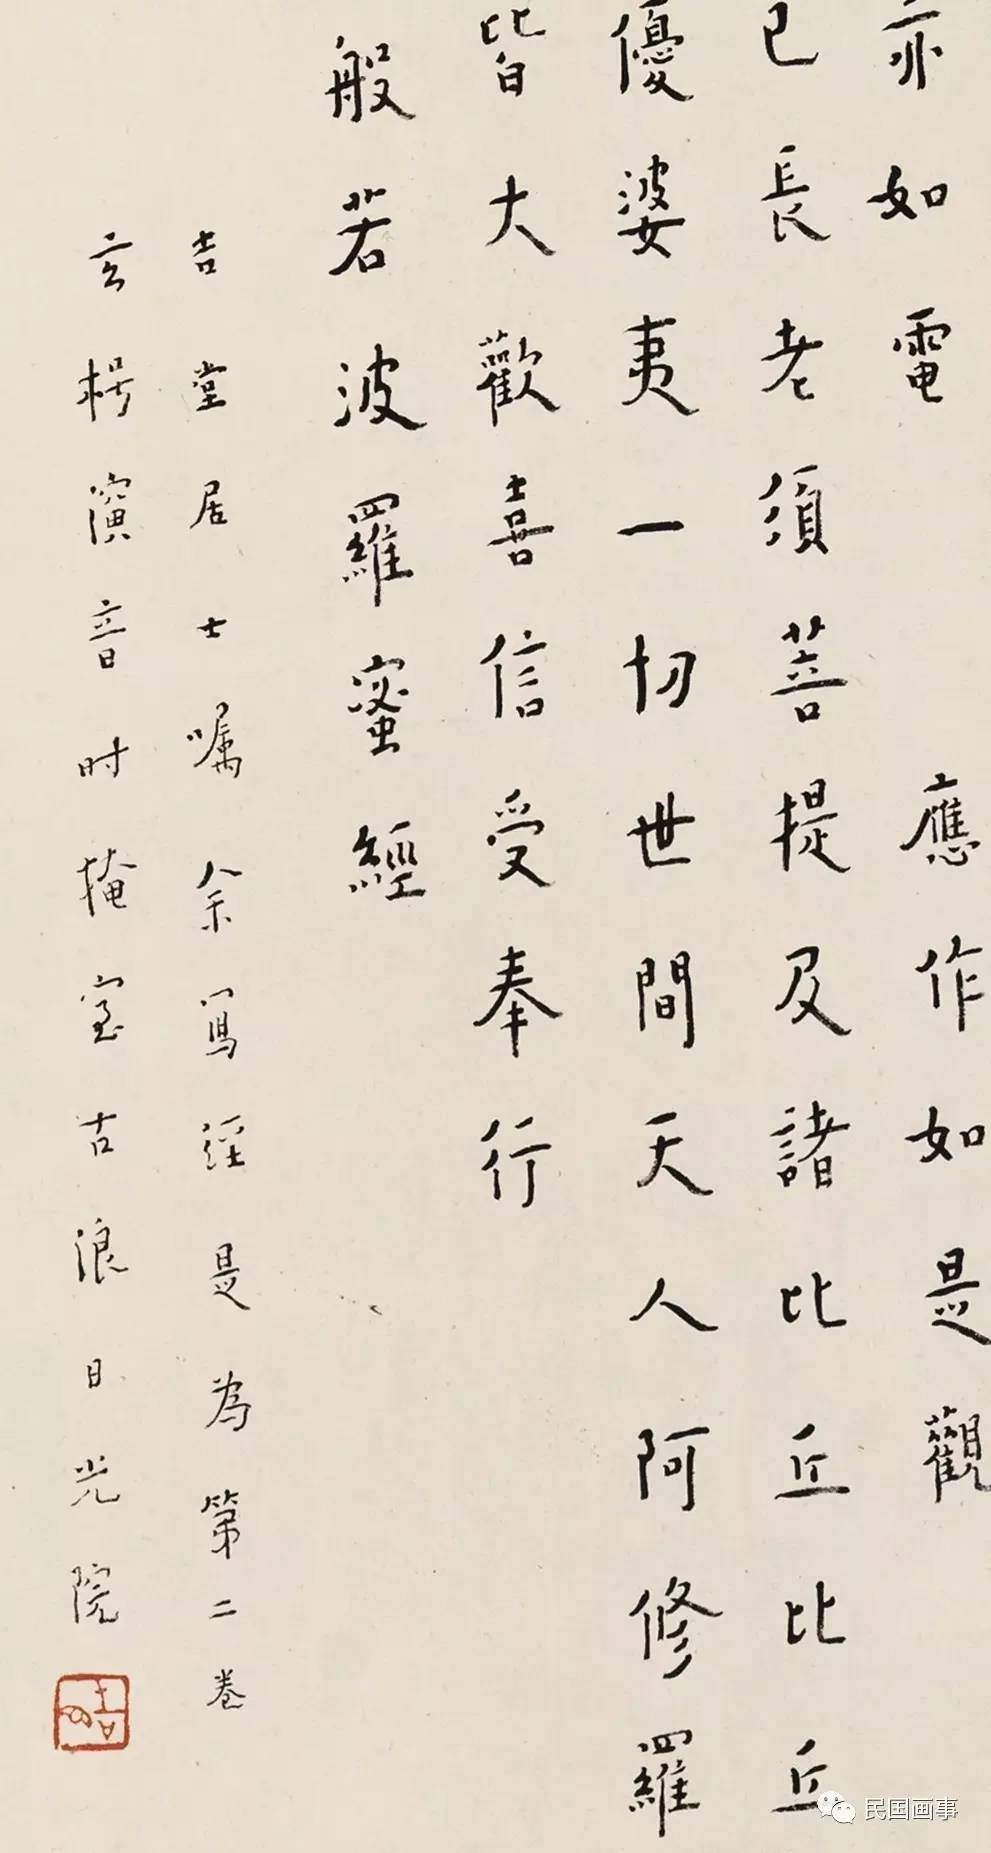 亦如電　應作如是觀
已長老須菩提及諸比丘比丘
優婆夷一切世間天人阿修羅
皆大歡喜信受奉行
般若波羅蜜經
吉堂居士嘱余寫经是為第二卷
玄枵演音时掩室古浪日光院
民国画事